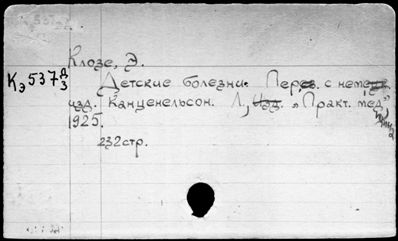 Клозе, Э.
Кэ 537 д/3
Детские болезни. Перев. с нем.
изд. Канценельсон. Л., Изд. "Практ. мед"
1925.
232 стр.